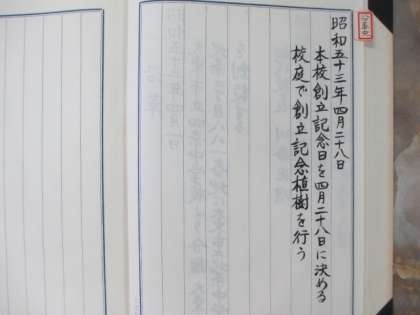 昭和五十三年四月二十八日
本校創立記念日を四月二十八日に決める
校庭で創立記念植樹を行う